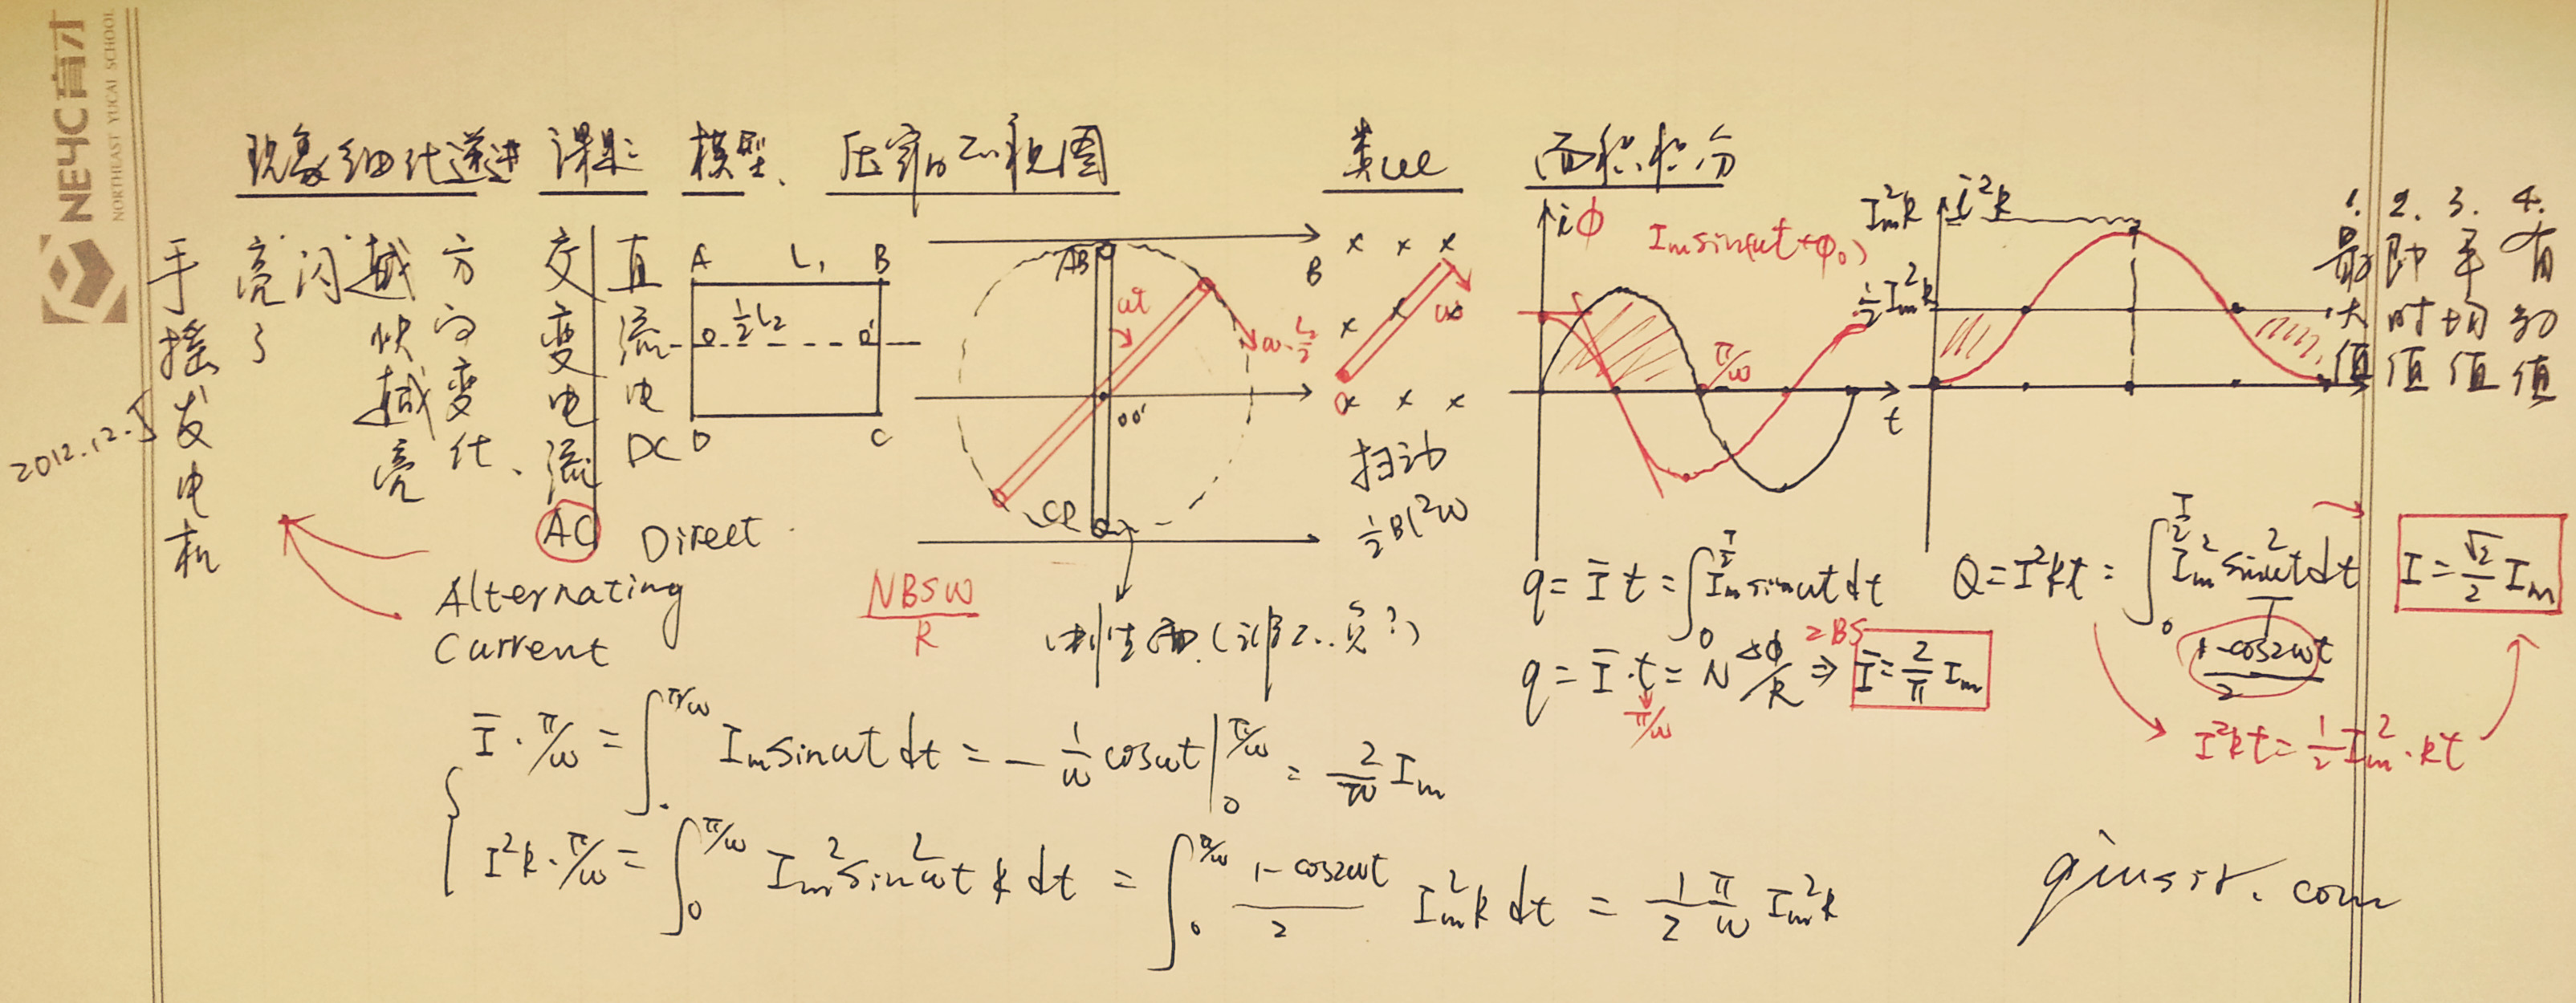 NEYC育才
NORTHEAST YUCAI SCHOOL
2012.12.5
现象细化递进 课题 模型、压缩的正视图 类比 面积积分
手摇发电机
亮了
闪
越快越亮
方向变化、
交变电流
AC
直流电
DC
Direct
Alternating
Current
A L₁ B
O ½L₂ O'
D C
AB
ωt
ω·L₂/2
OO'
CD
B
NBSω/R
中性面
× × ×
× × ×
× × ×
ω
O
扫动
½Bl²ω
i Φ
Im sin(ωt+φ₀)
π/ω
t
Im²R i²R
½Im²R
1. 最大值
2. 即时值
3. 平均值
4. 有効值
q = Ī t = ∫₀^{T/2} Im sinωt dt
q = Ī·t = N ΔΦ/R ⇒ Ī = 2/π Im
2BS
π/ω
Q = I²Rt = ∫₀^{T/2} Im² sin²ωt dt
(1-cos2ωt)/2
I = √2/2 Im
I²Rt = ½Im²·Rt
Ī·π/ω = ∫₀^{π/ω} Im sinωt dt = -1/ω cosωt |₀^{π/ω} = 2/ω Im
I²R·π/ω = ∫₀^{π/ω} Im² sin²ωt R dt = ∫₀^{π/ω} (1-cos2ωt)/2 Im²R dt = 1/2 π/ω Im²R
qiusir.com